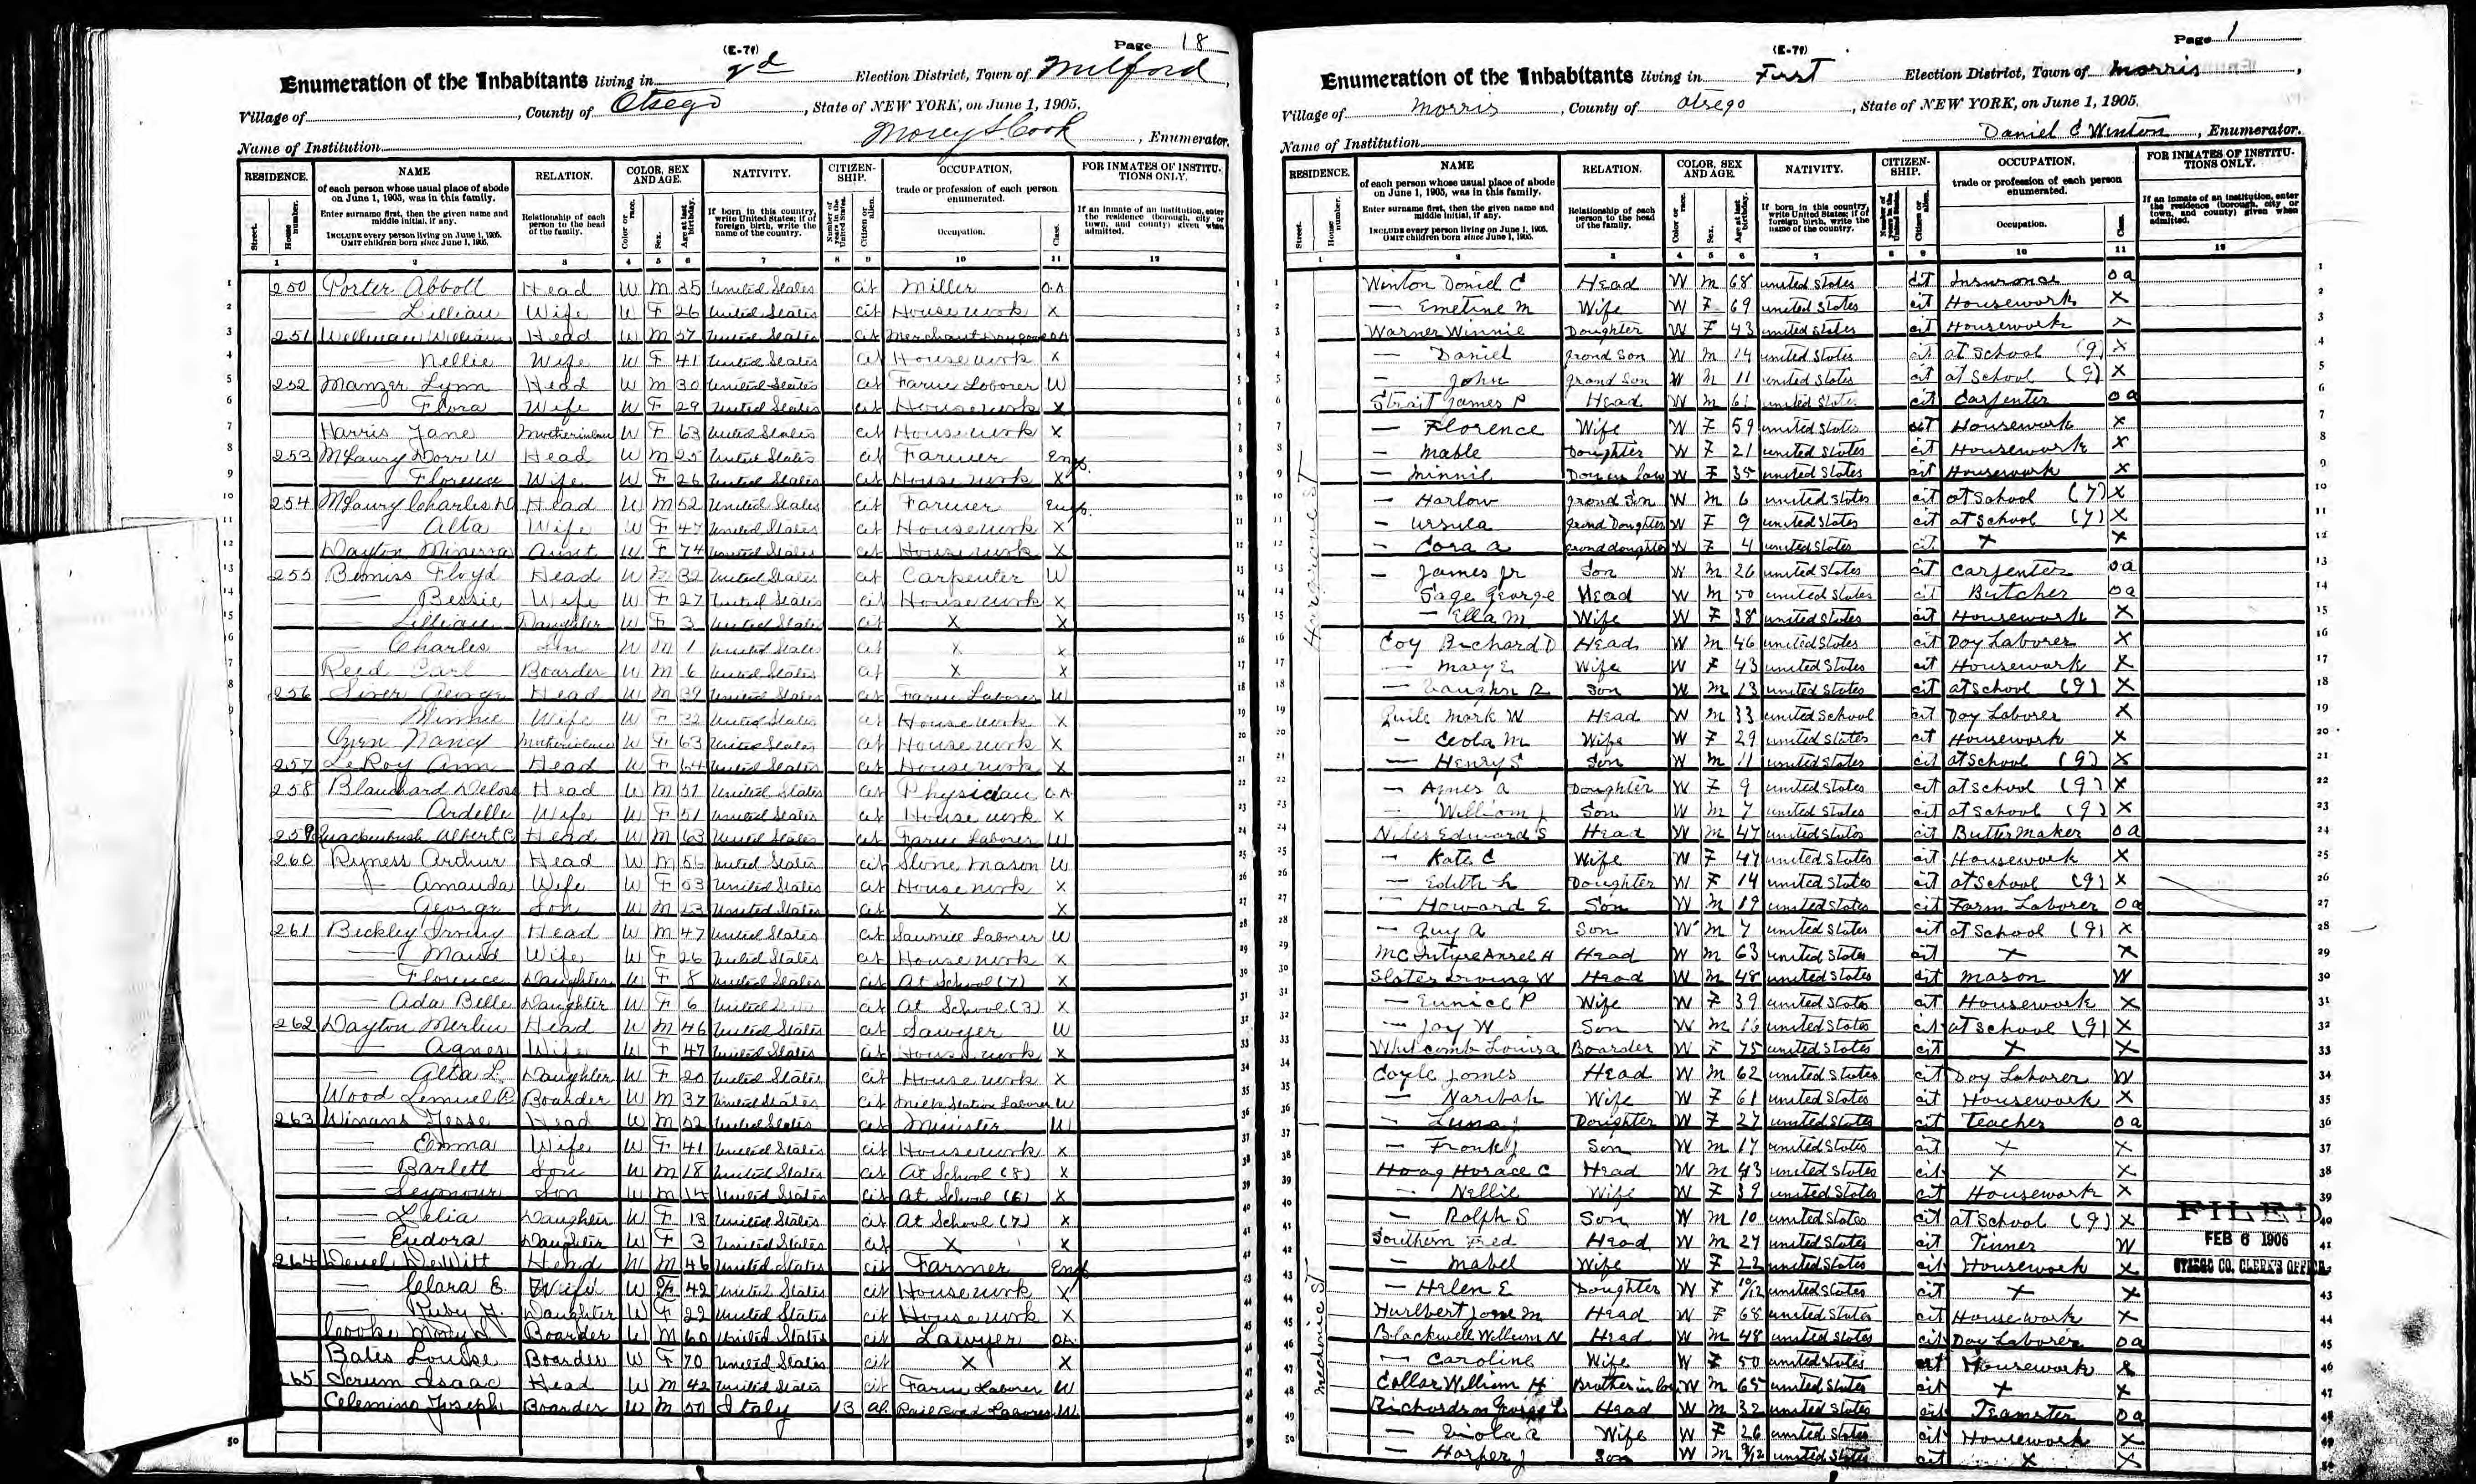 (E-79)
Page 18
Enumeration of the Inhabitants living in 2d Election District, Town of Milford,
Village of , County of Otsego, State of NEW YORK, on June 1, 1905.
Name of Institution , Enumerator.
RESIDENCE. NAME RELATION. COLOR, SEX AND AGE. NATIVITY. CITIZENSHIP. OCCUPATION, FOR INMATES OF INSTITUTIONS ONLY.
250 Porter Abbott Head W M 35 United States cit Miller O.A
— Lillian Wife W F 26 United States cit Housework X
251 Wellman William Head W M 57 United States cit Merchant
— Nellie Wife W F 41 United States cit Housework X
252 Manzer Lynn Head W M 30 United States cit Farm Laborer W
— Flora Wife W F 29 United States cit Housework X
Harris Jane Motherinlaw W F 63 United States cit Housework X
253 McLaury Dorr W Head W M 25 United States cit Farmer Emp.
— Florence Wife W F 26 United States cit Housework X
254 McLaury Charles Head W M 52 United States cit Farmer Emp.
— Alta Wife W F 47 United States cit Housework X
Dayton Minerva Aunt W F 74 United States cit Housework X
255 Bemiss Floyd Head W M 32 United States cit Carpenter W
— Bessie Wife W F 27 United States cit Housework X
— Lillian Daughter W F 3 United States cit X X
— Charles Son W M 1 United States cit X X
Reed Carl Boarder W M 6 United States cit X X
256 George Head W M 39 United States cit Farm Laborer W
— Minnie Wife W F 32 United States cit Housework X
Nancy Motherinlaw W F 63 United States cit Housework X
257 LeRoy Ann Head W F 64 United States cit Housework X
258 Blanchard Delos Head W M 57 United States cit Physician O.A.
— Ardelle Wife W F 51 United States cit Housework X
259 Quackenbush Albert C Head W M 63 United States cit Farm Laborer W
260 Ryness Arthur Head W M 56 United States cit Stone Mason W
— Amanda Wife W F 53 United States cit Housework X
— George Son W M 23 United States cit X X
261 Beckley Irving Head W M 47 United States cit Sawmill Laborer W
— Maud Wife W F 26 United States cit Housework X
— Florence Daughter W F 8 United States cit At School (7) X
— Ada Belle Daughter W F 6 United States cit At School (3) X
262 Dayton Merlin Head W M 46 United States cit Sawyer W
— Agnes Wife W F 47 United States cit Housework X
— Alta L. Daughter W F 20 United States cit Housework X
Wood Lemuel P. Boarder W M 37 United States cit Milk Station Laborer W
263 Winans Jesse Head W M 52 United States cit Minister W
— Emma Wife W F 41 United States cit Housework X
— Barlett Son W M 18 United States cit At School (8) X
— Seymour Son W M 14 United States cit At School (6) X
— Lelia Daughter W F 13 United States cit At School (7) X
— Eudora Daughter W F 3 United States cit X X
264 DeWitt Head W M 46 United States cit Farmer Emp
— Clara E. Wife W F 42 United States cit Housework X
— Ruby H. Daughter W F 22 United States cit Housework X
Cooke Boarder W M 60 United States cit Lawyer OA.
Bates Louise Boarder W F 70 United States cit X X
265 Scrum Isaac Head W M 42 United States cit Farm Laborer W
Celemino Joseph Boarder W M 50 Italy 13 Al. Rail Road Laborer W.
(E-79)
Page 1
Enumeration of the Inhabitants living in First Election District, Town of Morris,
Village of Morris, County of Otsego, State of NEW YORK, on June 1, 1905.
Name of Institution Daniel C Winton, Enumerator.
RESIDENCE. NAME RELATION. COLOR, SEX AND AGE. NATIVITY. CITIZENSHIP. OCCUPATION, FOR INMATES OF INSTITUTIONS ONLY.
Winton Daniel C Head W M 68 united states cit Insurance oa
— Emeline M Wife W F 69 united states cit Housework X
Warner Winnie Daughter W F 43 united states cit Housework X
— Daniel grand Son W M 14 united states cit at school (9) X
— John grand Son W M 11 united states cit at school (9) X
Strait James P Head W M 61 united states cit Carpenter oa
— Florence Wife W F 59 united states cit Housework X
— Mable Doughter W F 21 united states cit Housework X
— Minnie Dau in law W F 35 united states cit Housework X
— Harlow grand Son W M 6 united states cit at school (7) X
— Ursula grand Doughter W F 9 united states cit at school (7) X
— Cora A grand doughter W F 4 united states cit X X
— James Jr Son W M 26 united states cit Carpenter oa
Sage George Head W M 50 united states cit Butcher oa
— Ella M Wife W F 38 united states cit Housework X
Coy Richard D Head W M 46 united states cit Day Laborer X
— Mary E Wife W F 43 united states cit Housework X
— Vaughn R Son W M 13 united states cit at school (9) X
Guile Mark W Head W M 33 united school cit Day Laborer X
— Ceola M Wife W F 29 united states cit Housework X
— Henry S Son W M 11 united states cit at school (9) X
— Agnes A Doughter W F 9 united states cit at school (9) X
— William J Son W M 7 united states cit at school (9) X
Niles Edward S Head W M 47 united states cit Butter Maker oa
— Kate C Wife W F 47 united states cit Housework X
— Edith L Doughter W F 14 united states cit at school (9) X
— Howard E Son W M 19 united states cit Farm Laborer oa
— Guy A Son W M 7 united states cit at school (9) X
McIntyre Ansel H Head W M 63 united states cit X X
Slater Irving W Head W M 48 united states cit Mason W
— Eunice P Wife W F 39 united states cit Housework X
— Jay W Son W M 16 united states cit at school (9) X
Whitcomb Louisa Boarder W F 75 united states cit X X
Coyle James Head W M 62 united states cit Day Laborer W
— Naribah Wife W F 61 united states cit Housework X
— Luna J Doughter W F 27 united states cit Teacher oa
— Frank J Son W M 17 united states cit X X
Hoag Horace C Head W M 43 united states cit X X
— Nellie Wife W F 39 united states cit Housework X
— Ralph S Son W M 10 united states cit at school (9) X
Southern Fred Head W M 27 united states cit Tinner W
— Mabel Wife W F 22 united states cit Housework X
— Helen E Doughter W F 10/12 united states cit X X
Hurlbert Jane M Head W F 68 united states cit Housework X
Blackwell William N Head W M 48 united states cit Day Laborer oa
— Caroline Wife W F 50 united states cit Housework X
Collar William H Brother in law W M 65 united states cit X X
Richardson George L Head W M 32 united states cit Teamster oa
— Viola A Wife W F 26 united states cit Housework X
— Harper J Son W M 9/12 united states cit X X
Mechanic ST
FILED
FEB 6 1906
OTSEGO CO. CLERK'S OFFICE